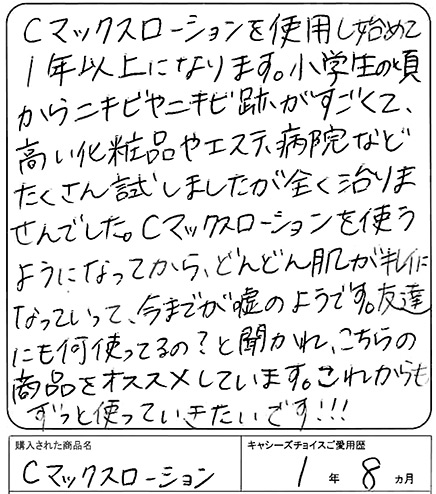 Cマックスローションを使用し始めて
1年以上になります。小学生の頃
からニキビやニキビ跡がすごくて、
高い化粧品やエステ、病院など
たくさん試しましたが全く治りま
せんでした。Cマックスローションを使う
ようになってから、どんどん肌がキレイに
なっていって、今までが嘘のようです。友達
にも何使ってるの?と聞かれ、こちらの
商品をオススメしています。これからも
ずっと使っていきたいです!!!
購入された商品名 キャシーズチョイスご愛用歴
Cマックスローション 1年8ヵ月